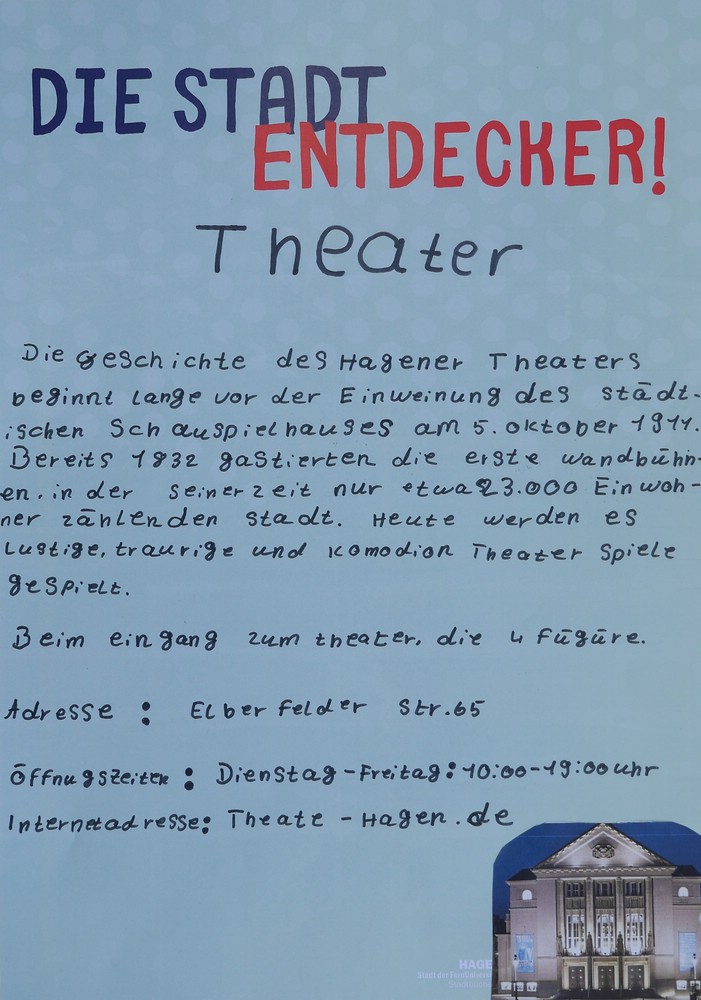 DIE STADT
ENTDECKER!
Theater
Die geschichte des Hagener Theaters
beginnt lange vor der Einweinung des städt-
ischen Schauspielhauses am 5. oktober 1911.
Bereits 1832 gastierten die erste wandbühn-
en, in der seinerzeit nur etwa 23.000 Einwoh-
ner zählenden stadt. Heute werden es
Lustige, traurige und komodion Theater Spiele
gespielt.
Beim eingang zum theater, die 4 Fügüre.
Adresse : Elberfelder Str. 65
Öffnugszeiten : Dienstag - Freitag: 10:00-19:00 uhr
Internetadresse: Theate - Hagen.de
HAGE
Stadt der